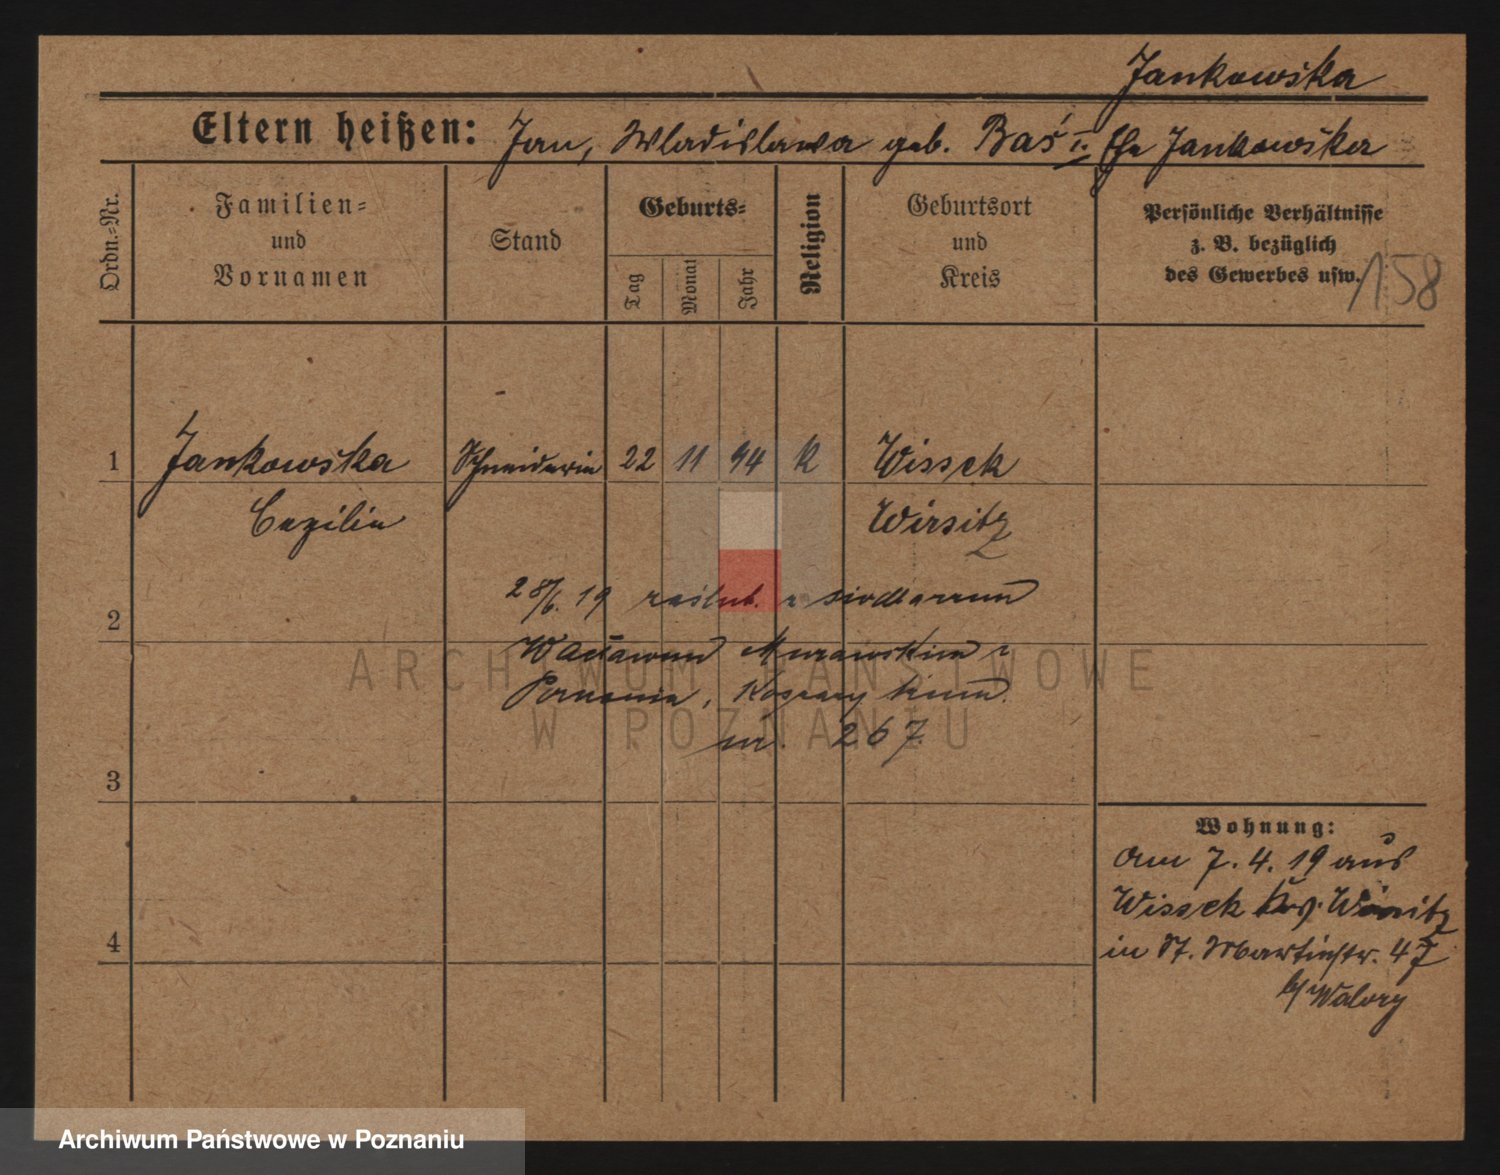 Jankowska
Eltern heißen: Jan, Wladislawa geb. Baś I. Ehe Jankowska
Ordn.-Nr.
Familien-
und
Vornamen
Stand
Geburts-
Tag
Monat
Jahr
Religion
Geburtsort
und
Kreis
Persönliche Verhältnisse
z. B. bezüglich
des Gewerbes usw.
158
1 Jankowska Schneiderin 22 11 94 K Wissek
Cezilia Wirsitz
28/6. 19 zaślub. z siodlarzem
2
Wacławem Murawskim z
Poznania, Koszary
nr. 267
3
4
Wohnung:
Am 7. 4. 19 aus
Wissek Krs. Wirsitz
in St. Martinstr. 47
b/ Walory
ARCHIWUM PAŃSTWOWE
W POZNANIU
Archiwum Państwowe w Poznaniu